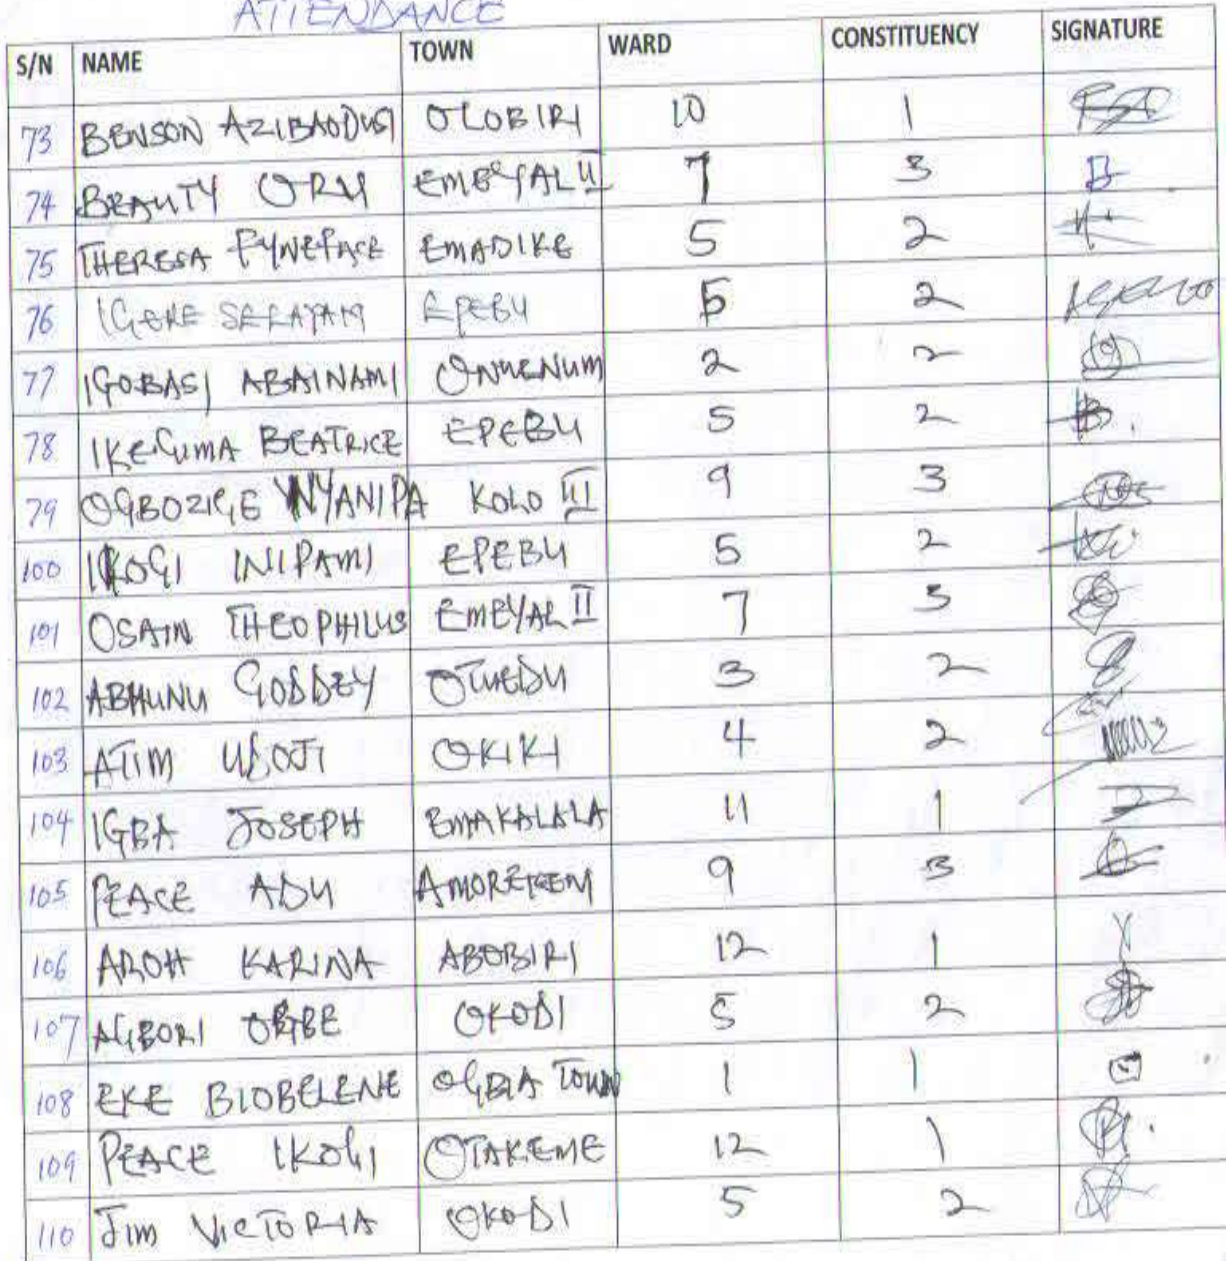 ATTENDANCE
S/N NAME TOWN WARD CONSTITUENCY SIGNATURE
73 BENSON AZIBAODUSI OLOBIRI 10 1
74 BEAUTY ORU EMEYAL II 7 3
75 THERESA FYNEFACE EMADIKE 5 2
76 IGERE EPEBU 5 2
77 IGOBASI ABAINAMI ONUENUM 2 2
78 IKEGUMA BEATRICE EPEBU 5 2 B.
79 OGBOZIGE NYANIPA KOLO III 9 3
100 IKOGI INIPAMI EPEBU 5 2
101 OSAIN THEOPHILUS EMEYAL II 7 3
102 ABHUNU GODDEY OTUEDU 3 2
103 ATIM OKIKI 4 2
104 IGBA JOSEPH EMAKALALA 11 1
105 PEACE ADU 9 3
106 AROH KARINA ABOBIRI 12 1
107 AGBORI OGBE OKODI 5 2
108 EKE BIOBELENE OGBIA TOWN 1 1
109 PEACE IKOGI OTAKEME 12 1
110 JIM VICTORIA OKODI 5 2